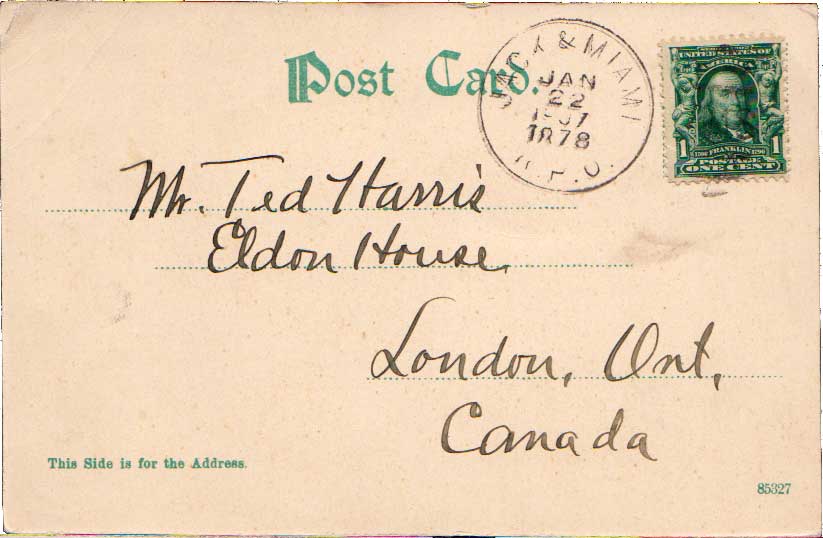 Post Card.
JACK & MIAMI
JAN
22
1907
1878
R.P.O.
UNITED STATES OF
AMERICA
1 1706 FRANKLIN 1790 1
POSTAGE
ONE CENT
Mr. Ted Harris
Eldon House
London, Ont,
Canada
This Side is for the Address.
85327